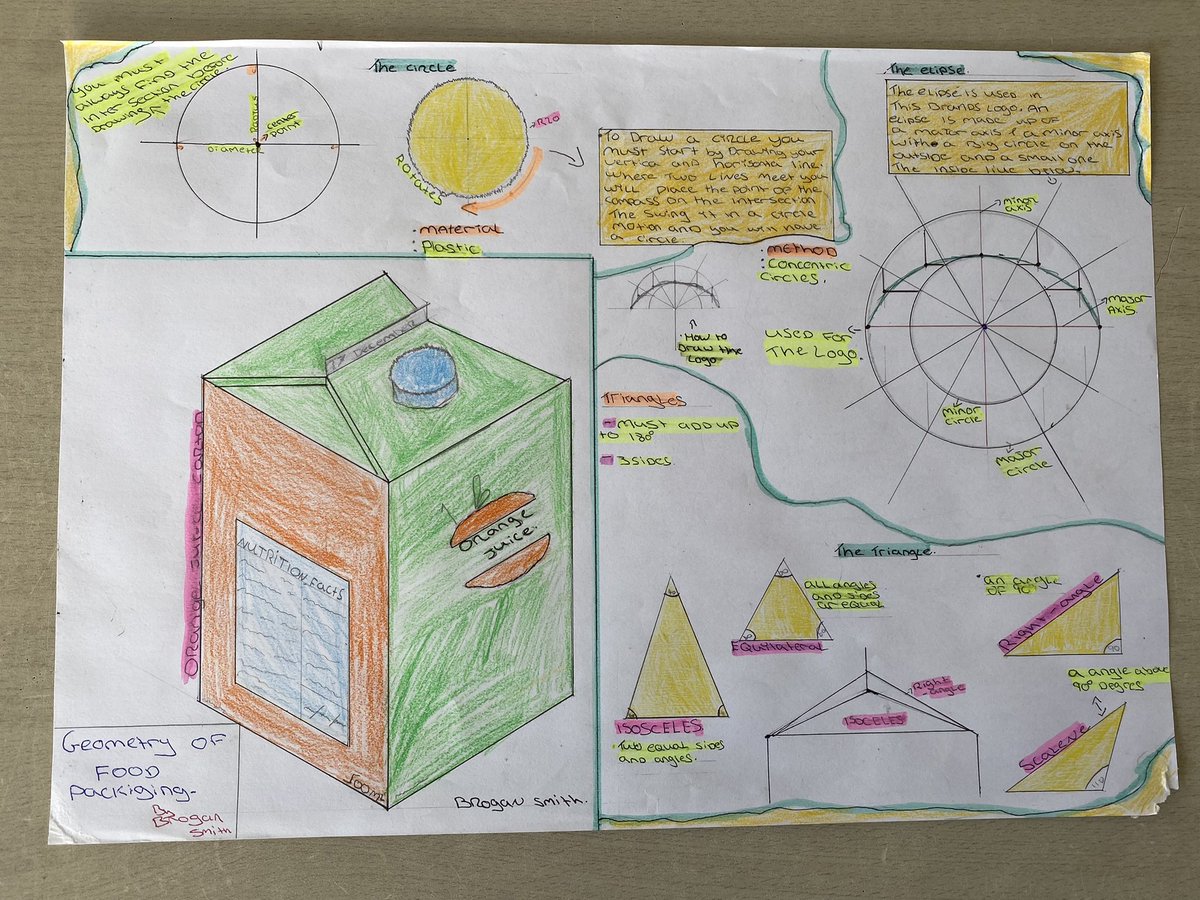 You must
always find the
inter section before
drawing the circle
Radius
center
point
Diameter
The circle
R20
Rotates
· Material
· Plastic
To Draw a circle you
must start by Drawing your
vertica and horisontal line.
where two lives meet you
will place the point of the
compass on the intersection
The swing it in a circle
motion and you will have
a circle.
The elipse.
The elipse is used in
This Brands logo. An
elipse is made up of
a major axis & a minor axis
with a Big circle on the
outside and a small one
The inside like below
minor
axis
major
Axis.
minor
circle
major
circle
· Method
· Concentric
circles.
used for
The Logo.
· How to
Draw the
Logo
Triangles
- Must add up
to 180°
- 3 sides.
17 December
Orange
juice.
Orange juice carton
Nutrition Facts
500mL
Brogan Smith.
Geometry of
Food
Packiging-
Brogan
Smith
The Triangle.
Isosceles
· Two equal sides
and angles.
60
All angles
and sides
are equal
Equilateral
Right
-angle
Isoceles
· an angle
of 90°
Right-angle
90
a angle above
90° Degrees
Scalene
110